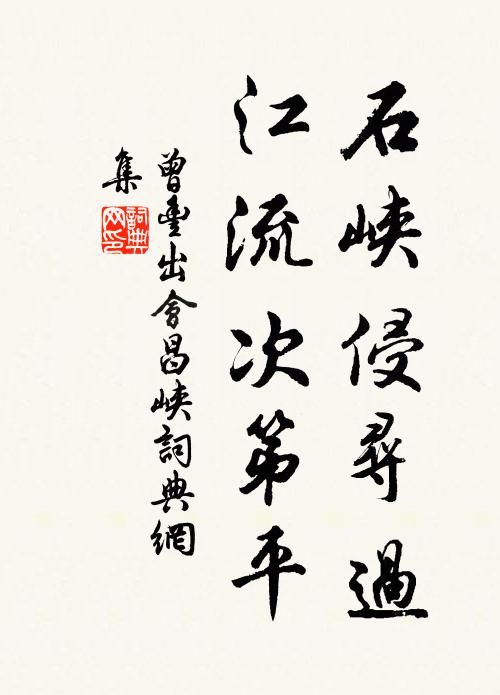 石峽侵尋過
江流次第平
曾豐出會昌峽詞典網
集
詞典網印